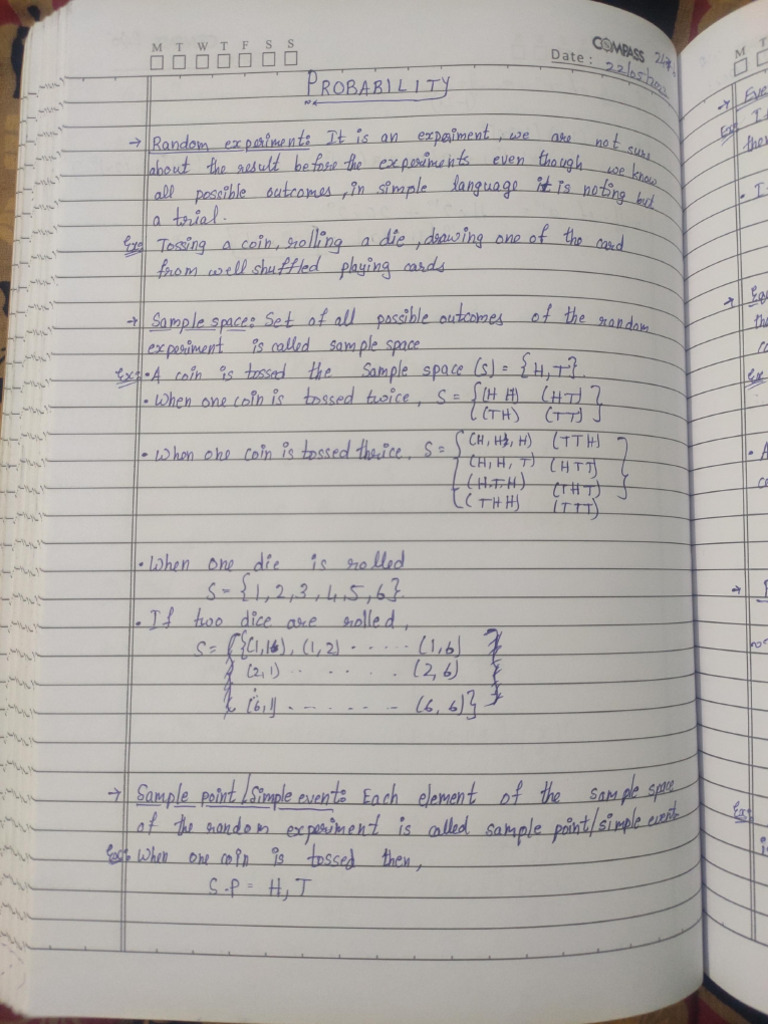 M T W T F S S
COMPASS
Date: 22/05/
PROBABILITY
→ Random experiment: It is an experiment, we are not sure
about the result before the experiments even though we know
all possible outcomes, in simple language it is noting but
a trial.
Ex: Tossing a coin, rolling a die, drawing one of the card
from well shuffled playing cards
→ Sample space: Set of all possible outcomes of the random
experiment is called sample space
Ex: • A coin is tossed the sample space (s) = {H, T}.
• When one coin is tossed twice, S = {(H H) (HT)
(TH) (TT)}
• When one coin is tossed thrice, S = {(H, H, H) (TTH)
(H, H, T) (HTT)
(H.T.H) (THT)
(THH) (TTT)}
• When one die is rolled
S = {1, 2, 3, 4, 5, 6}.
• If two dice are rolled,
S = {(1,1), (1,2) ..... (1,6)
(2,1) ...... (2,6)
(6,1) ...... (6,6)}
→ Sample point/Simple event: Each element of the sample space
of the random experiment is called sample point/simple event
Ex: When one coin is tossed then,
S.P = H, T
M T
→ Eve
Ex
• I
→ Equ
Ex
• A
Ex: